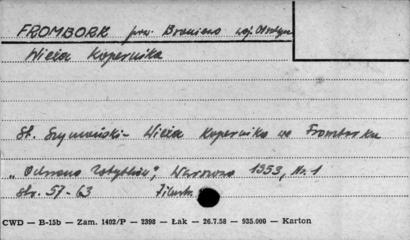 FROMBORK pow. Braniewo woj. Olsztyn
Wieża Kopernika
St. Szymański - Wieża Kopernika we Fromborku
"Ochrona Zabytków", Warszawa 1953, Nr. 1
str. 57-63 Filustr.
CWD — B-15b — Zam. 1402/P — 2398 — Łak — 26.7.58 — 935.000 — Karton